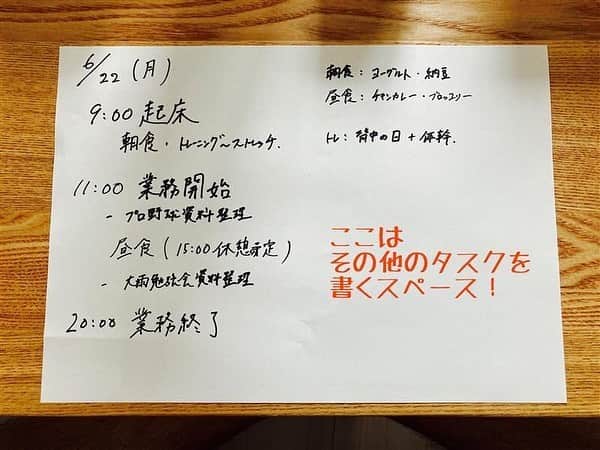 6/22(月)
9:00 起床
朝食・トレーニング〜ストレッチ.
11:00 業務開始
- プロ野球資料整理
昼食(15:00休憩予定)
- 大雨勉強会資料整理
20:00 業務終了
朝食: ヨーグルト・納豆
昼食: チキンカレー・ブロッコリー
トレ: 背中の日 + 体幹.
ここは
その他のタスクを
書くスペース!